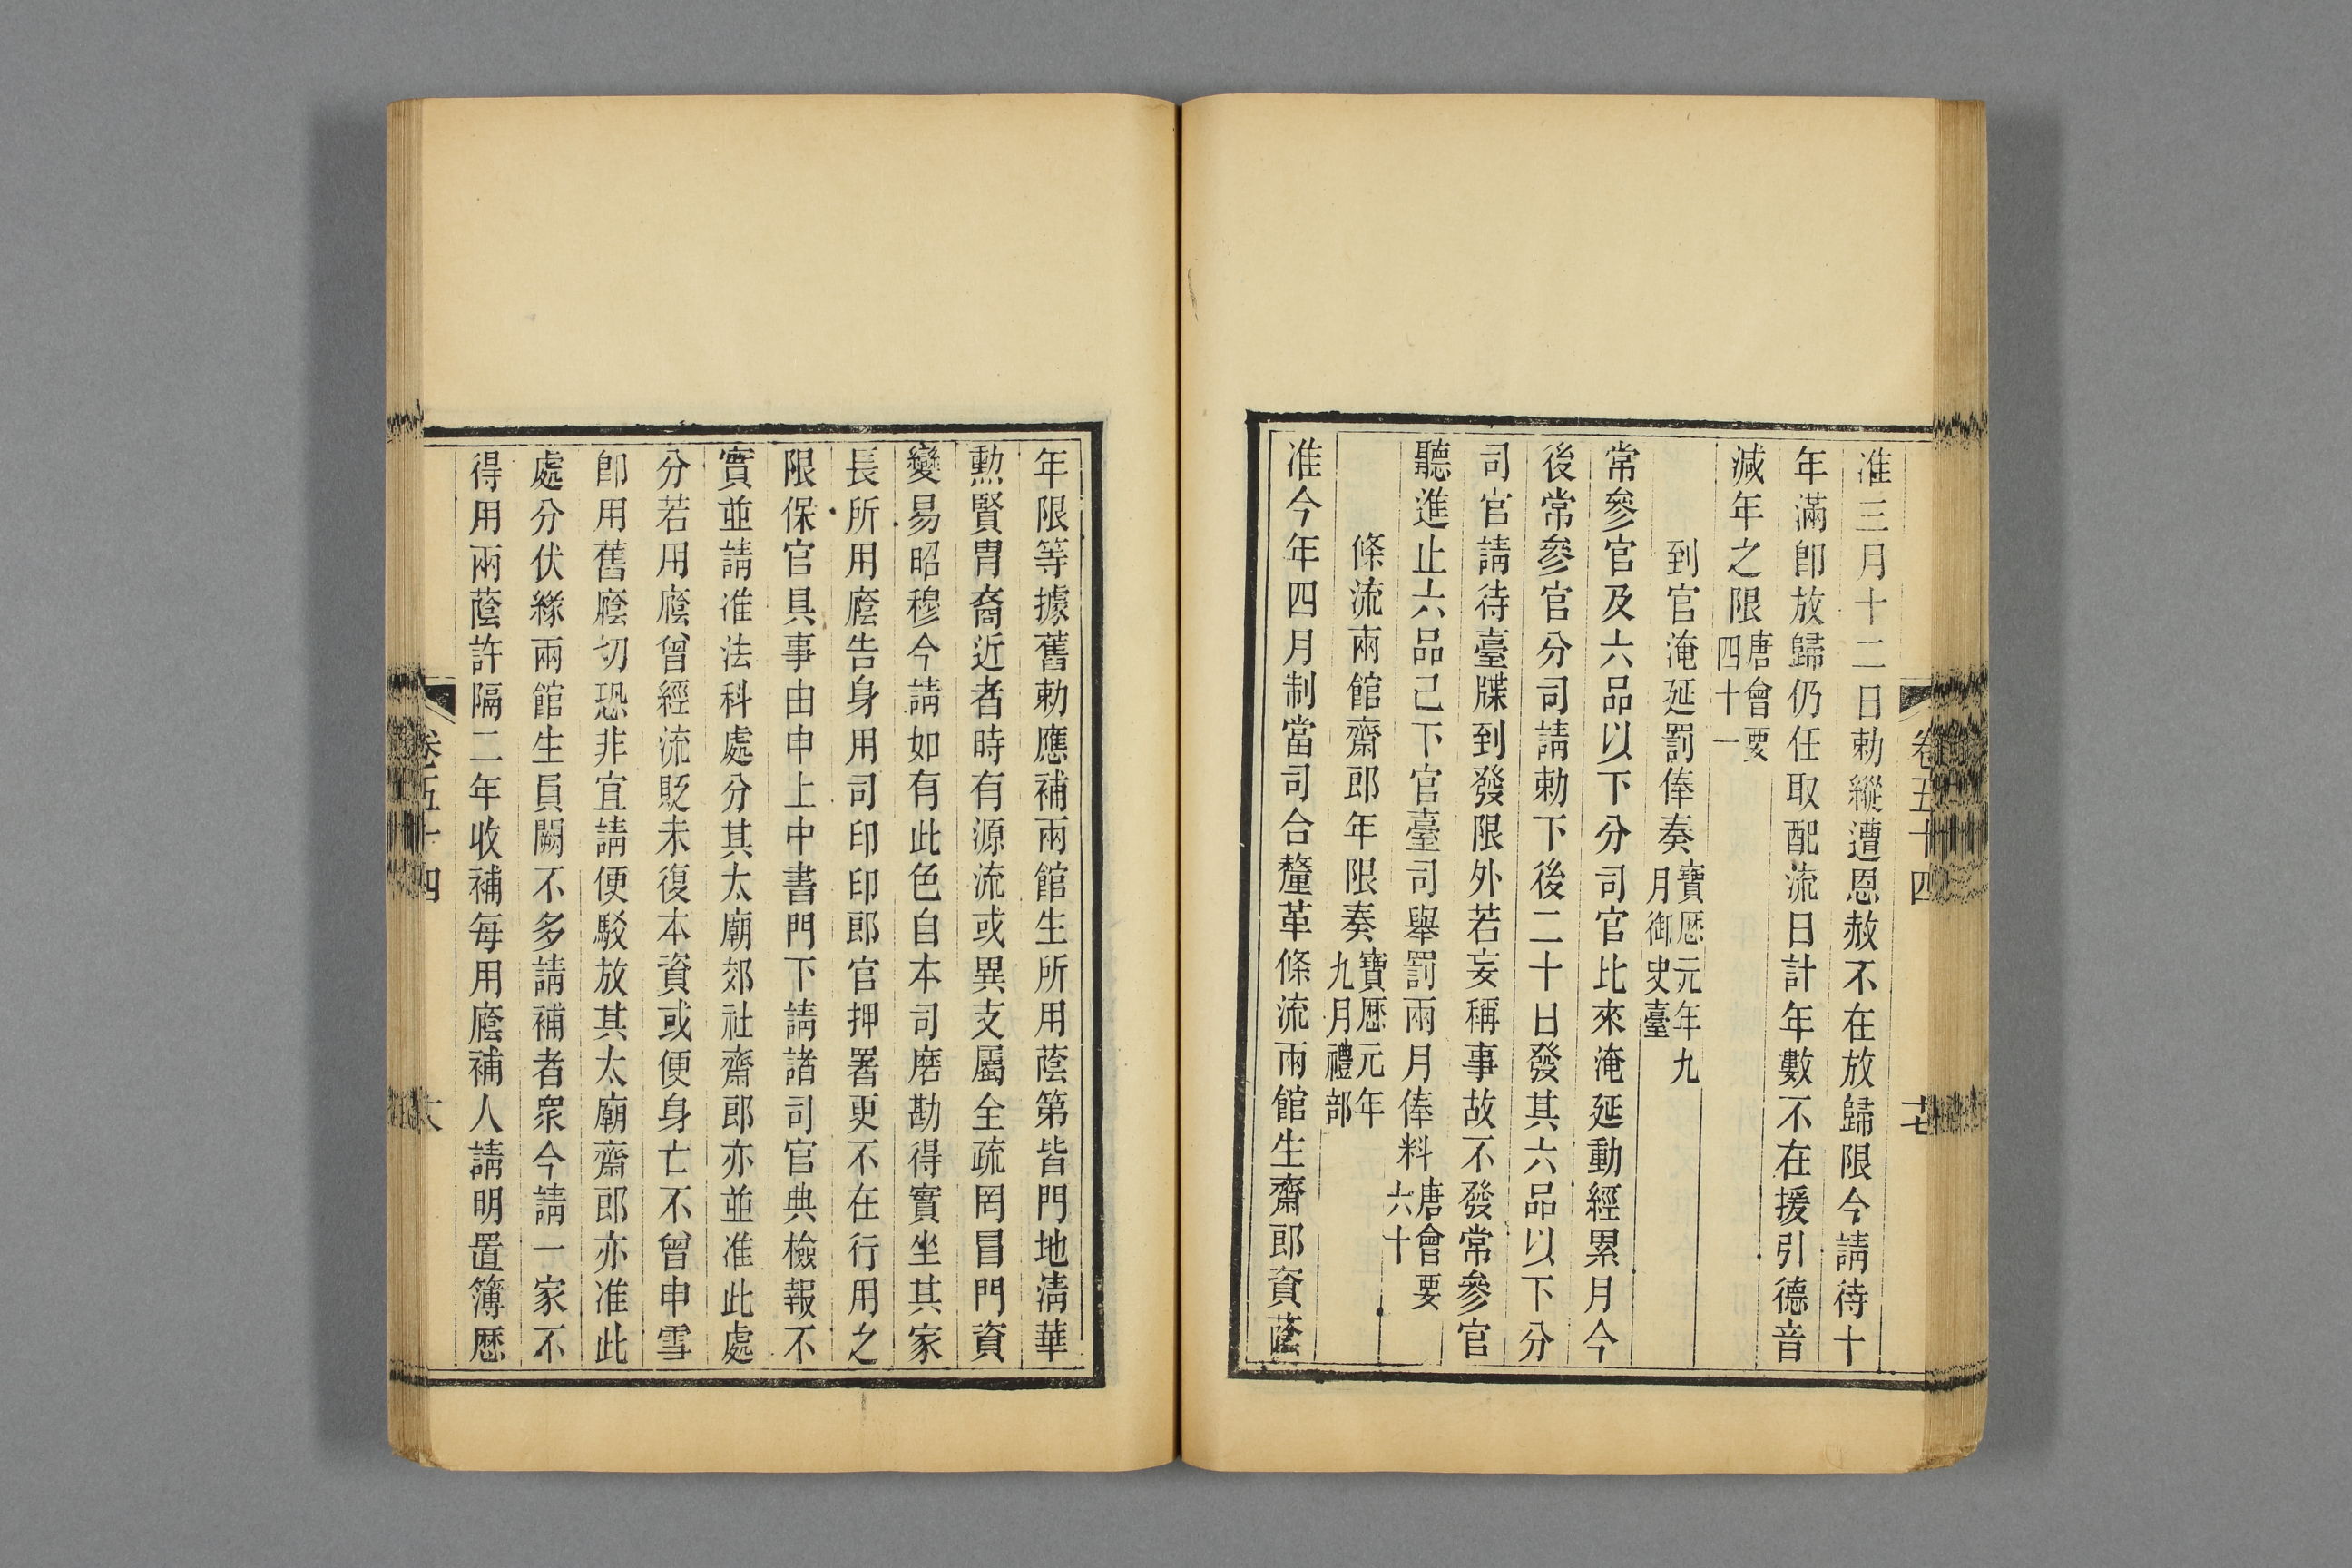 准三月十二日勅縱遭恩赦不在放歸限今請待十
年滿卽放歸仍任取配流日計年數不在援引德音
減年之限唐會要
四十一
到官淹延罰俸奏寶歷元年九
月御史臺
常參官及六品以下分司官比來淹延動經累月今
後常參官分司請勅下後二十日發其六品以下分
司官請待臺牒到發限外若妄稱事故不發常參官
聽進止六品已下官臺司舉罰兩月俸料唐會要
六十
條流兩館齋郎年限奏寶歷元年
九月禮部
准今年四月制當司合釐革條流兩館生齋郎資蔭
卷五十四
十七
年限等據舊勅應補兩館生所用蔭第皆門地淸華
勲賢胄裔近者時有源流或異支屬全疏罔冒門資
變易昭穆今請如有此色自本司磨勘得實坐其家
長所用廕告身用司印印郎官押署更不在行用之
限保官具事由申上中書門下請諸司官典檢報不
實並請准法科處分其太廟郊社齋郎亦並准此處
分若用廕曾經流貶未復本資或便身亡不曾申雪
卽用舊廕切恐非宜請便駁放其太廟齋郎亦准此
處分伏緣兩館生員闕不多請補者眾今請一家不
得用兩蔭許隔二年收補每用廕補人請明置簿歷
卷五十四